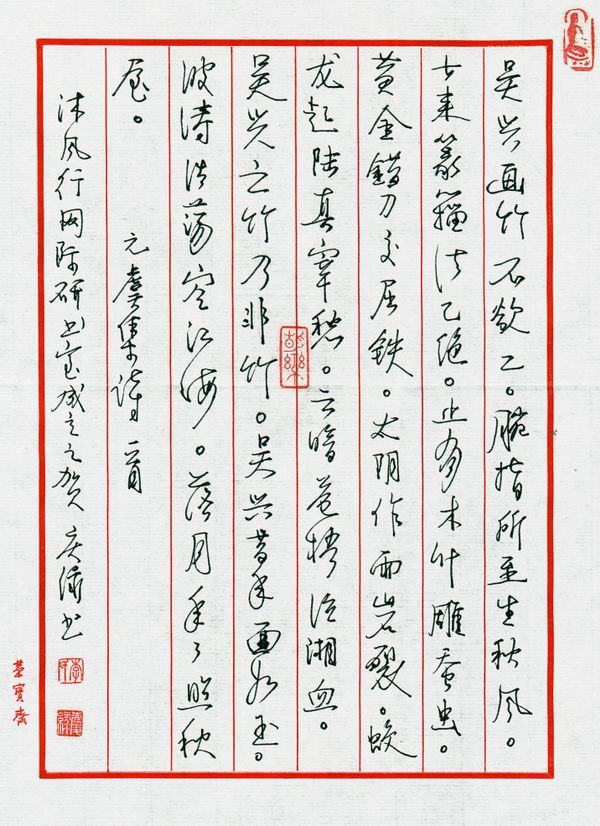 吴兴画竹不欲工。腕指所至生秋风。
古来篆籀法已绝。止有木叶雕蚕虫。
黄金错刀交屈铁。太阴作雨岩裂。蛟
龙起陆真宰愁。云暗苍梧泣湘血。
吴兴之竹乃非竹。吴兴昔年面如玉。
波涛浩荡空江海。落月年々照秋
屋。
元虞集诗一首
沐风行网际研书室成立之贺 书
荣宝斋